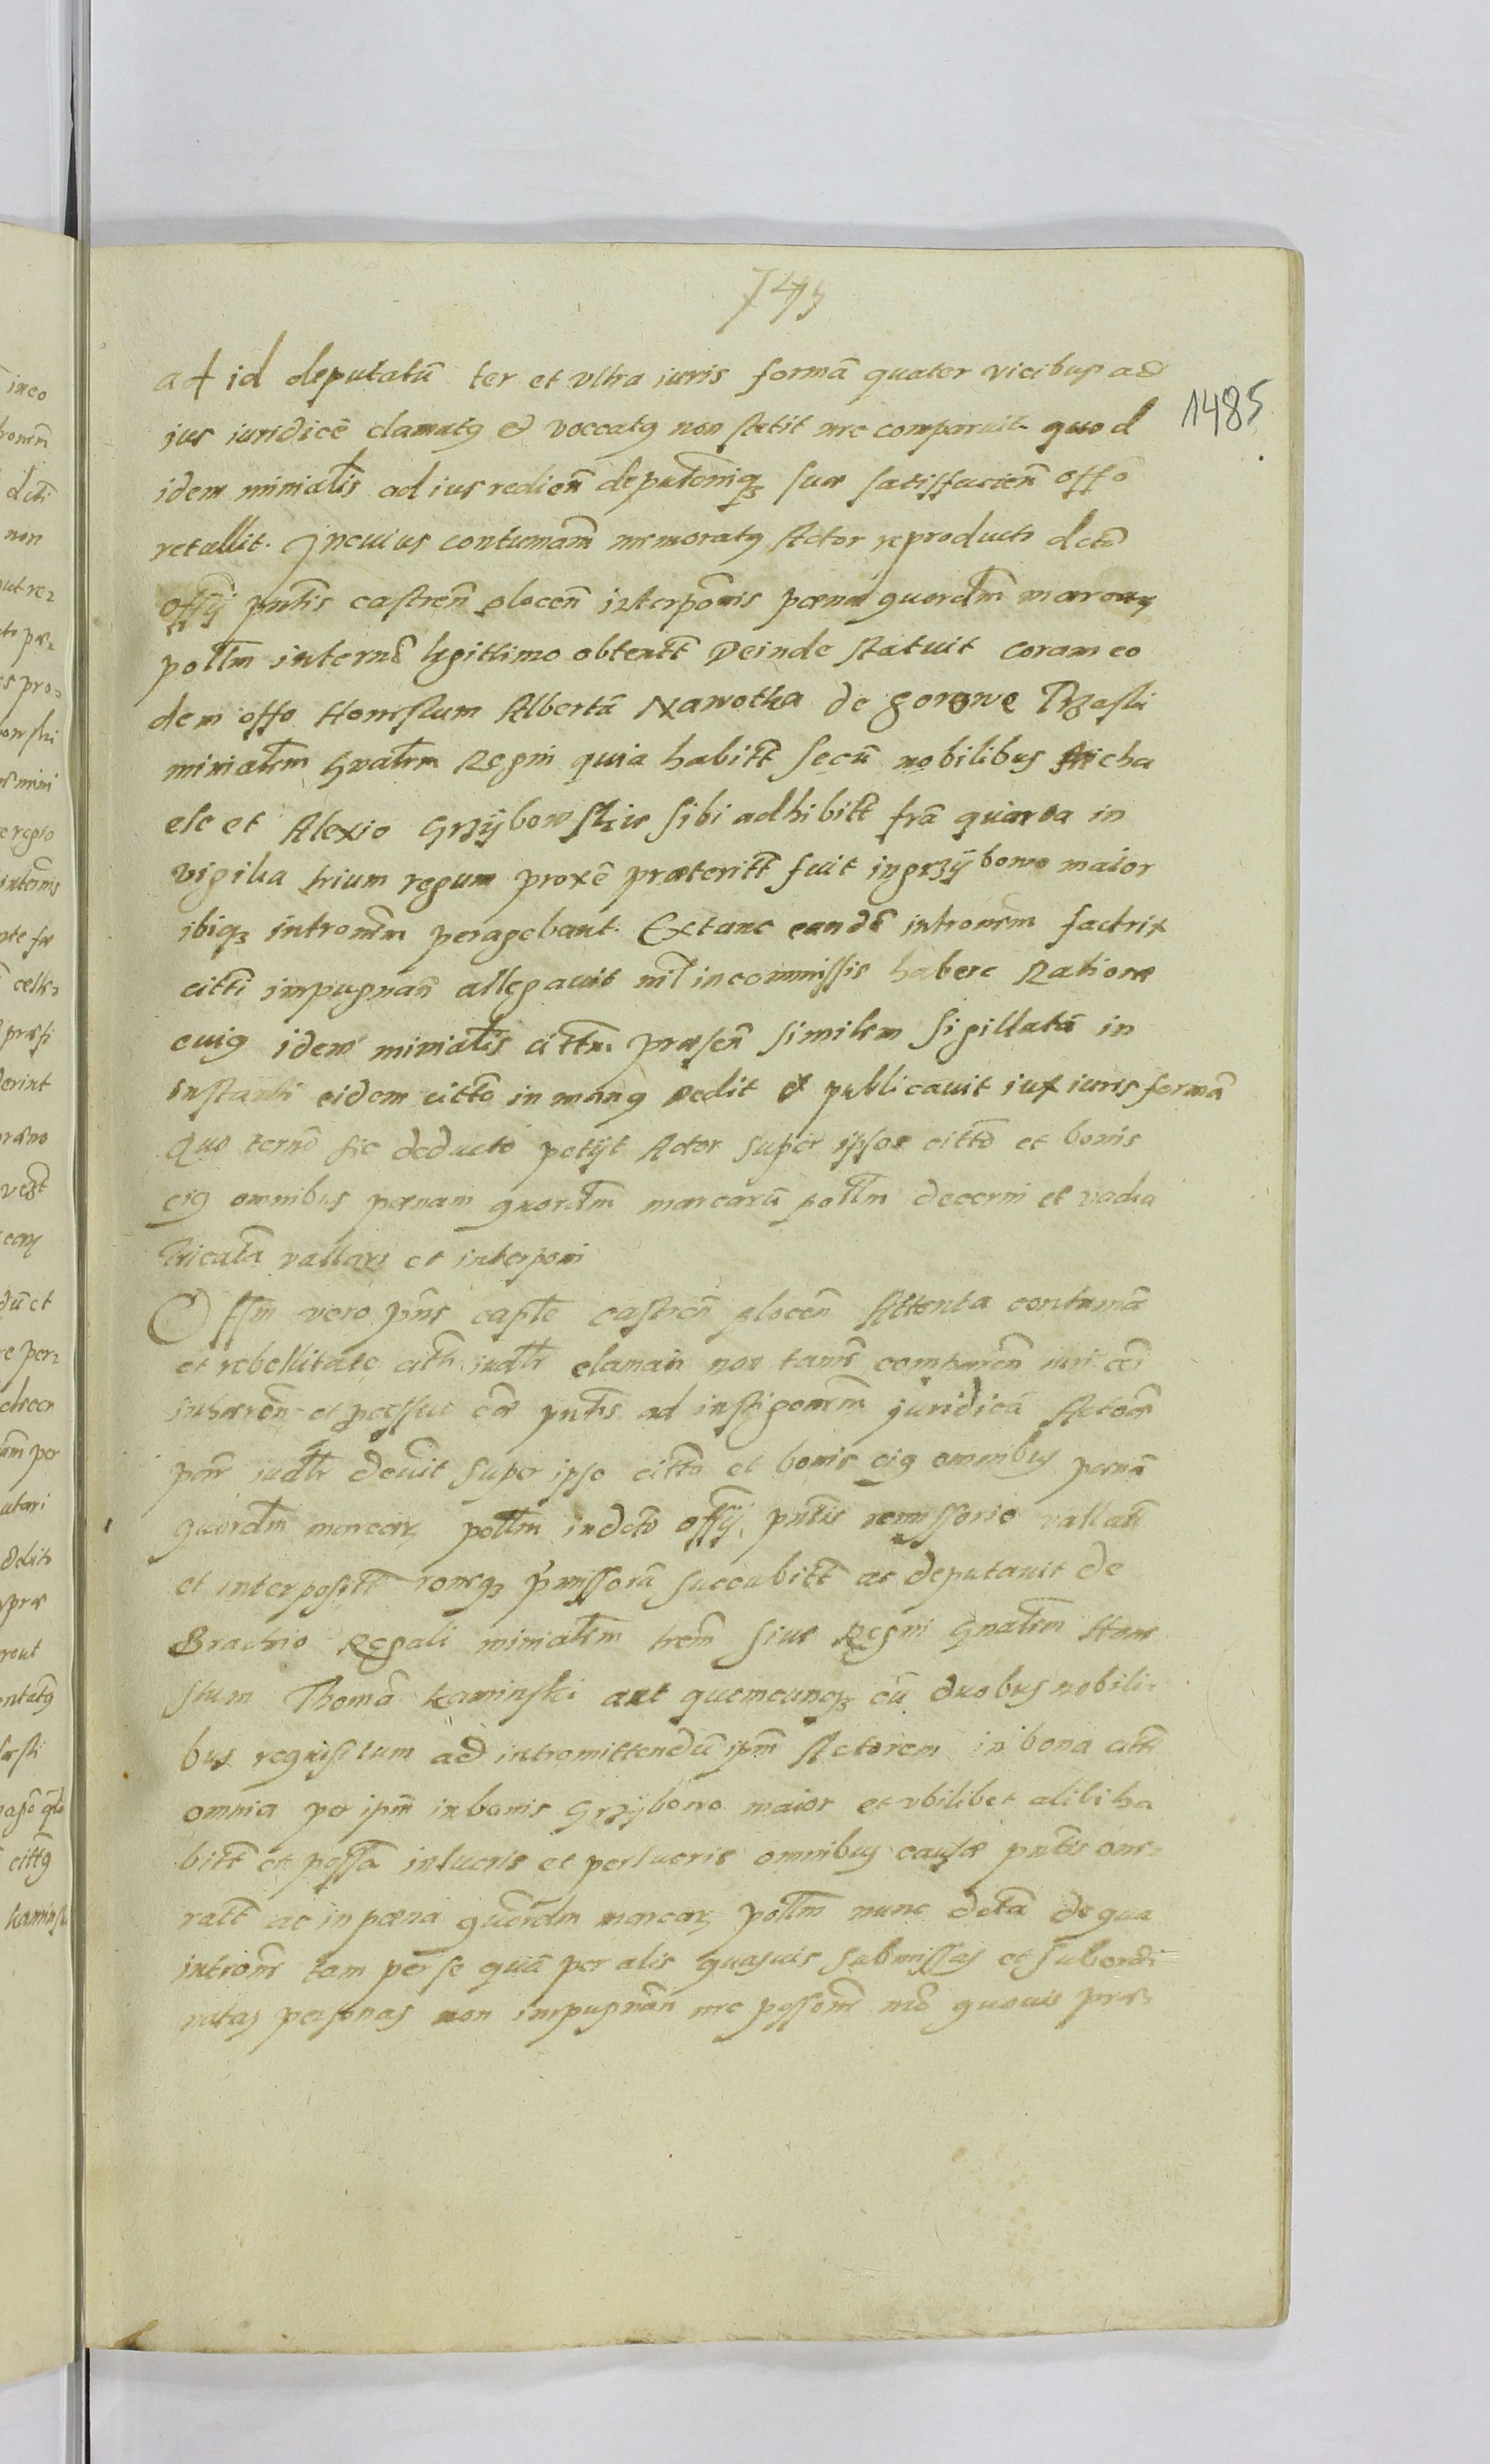 745
1485
ad id deputatū ter et vltra iuris formā quater vicibus ad
ius iuridicē clamatꝰ et voccatꝰ non stetit nec comparuit quod
idem ministlis ad ius redien̄ deputōniqꝫ suæ satisfacien̄ offō
retullit. In cuius contumam̄ memoratꝰ Actor reproducto dcto
offij pn̄tis castren̄ plocen̄ interpōnis pœna quordm̄ marcarꝫ
pollm̄ intermō legittimo obtentt Deinde statuit coram eo
dem offo Honestum Albertū Nawotka de Gorowe Trzaski
ministlem Gn̄alem Regni quia habitt secū nobilibus Micha
ele et Alexio Grzÿbowskis sibi adhibitt fr̄ia quarta in
vigilia trium regum proxē præteritt fuit in Grzÿbowo maior
ibiqꝫ intromm̄ peragebant. Ex tunc eandē intromm̄ factrix
citti impugnan̄ allegauit nil in commissis habere Ratione
cuiꝰ idem ministlis cittm̄ præsen̄ similem sigillatā in
instanti eidem citto in manꝰ dedit et publicauit iux iuris formā
Quo termō sic deducto petijt Actor super ipsoe citto et bonis
eiꝰ omnibus pœnam quordm̄ marcarū pollm̄ decerni et vadia
tricatā vallari et interponi
Offm̄ vero pn̄s captle castren̄ plocen̄ Attenta contumā
et rebellitate citti iudlr clamati non tamē comparen̄ iuri cōi
inhæren̄ et processui cāe pn̄tis ad instigōnem̄ juridicā Actoris
pœn̄ iudlr decr̄uit super ipso citto et bonis eiꝰ omnibus pœnā
quordm̄ marcarꝫ pollm̄ in dcto offij pn̄tis remissorio vallatā
et interpositt rōneqꝫ pr̄missorū succubitt ac deputauit de
Brachio Regali ministlem trēm siue Regni Gnalem Hone
stum Thomā Kaminski aut quemcunqꝫ cū duobus nobili-
bus requisitum ad intromittendū ipm̄ Actorem in bona citti
omnia per ipm̄ in bonis Grzÿbowo maior et vbilibet alibi ha
bitt et possa in lucris et perlucris omnibus causæ pn̄tis one-
ratt ac in pœna quordm̄ marcarꝫ pollm̄ nunc dcta de qua
intromr̄ tam per se quā per alis quasuis submissas et subordi
natas personas non impugnan̄ nec possōnē mō quouis præ-